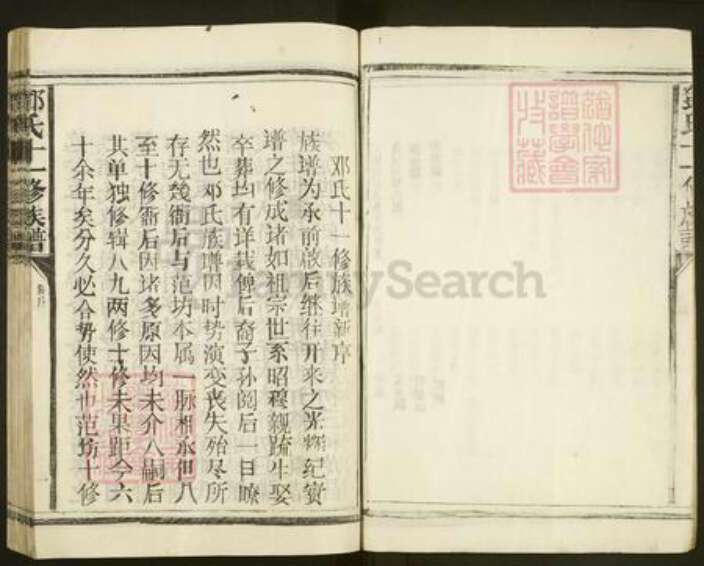 邓氏十一修族谱新序
族谱为承前啟后继往开来之光辉纪实
谱之修成诸如祖宗世系昭穆亲疏生娶
卒葬均有详载俾后裔子孙阅后一目瞭
然也邓氏族谱因时势演变丧失殆尽所
存无几衕后与范坊本属一脉相承但八
至十修衕后因诸多原因均未介入嗣后
其单独修辑八九两修十修未果距今六
十余年矣分久必合势使然也范坊十修
邓氏十一修族谱